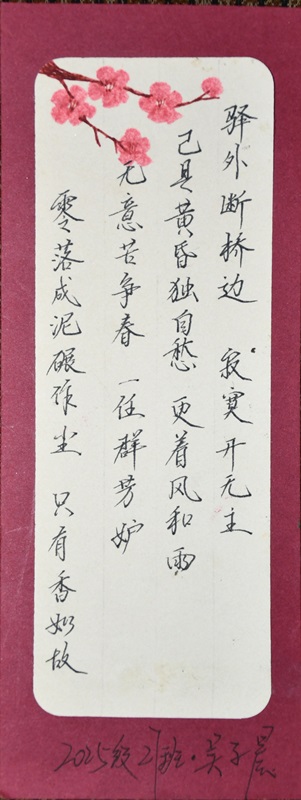 驿外断桥边 寂寞开无主
已是黄昏独自愁 更着风和雨
无意苦争春 一任群芳妒
零落成泥碾作尘 只有香如故
2025级27班·吴子晨